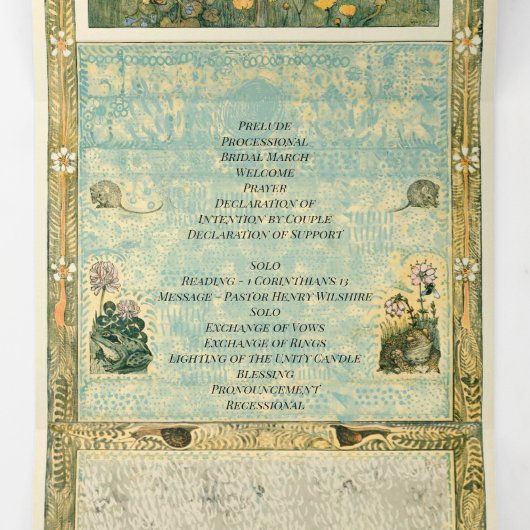 Prelude
Processional
Bridal March
Welcome
Prayer
Declaration of
Intention by Couple
Declaration of Support
Solo
Reading - 1 Corinthians 13
Message - Pastor Henry Wilshire
Solo
Exchange of Vows
Exchange of Rings
Lighting of the Unity Candle
Blessing
Pronouncement
Recessional